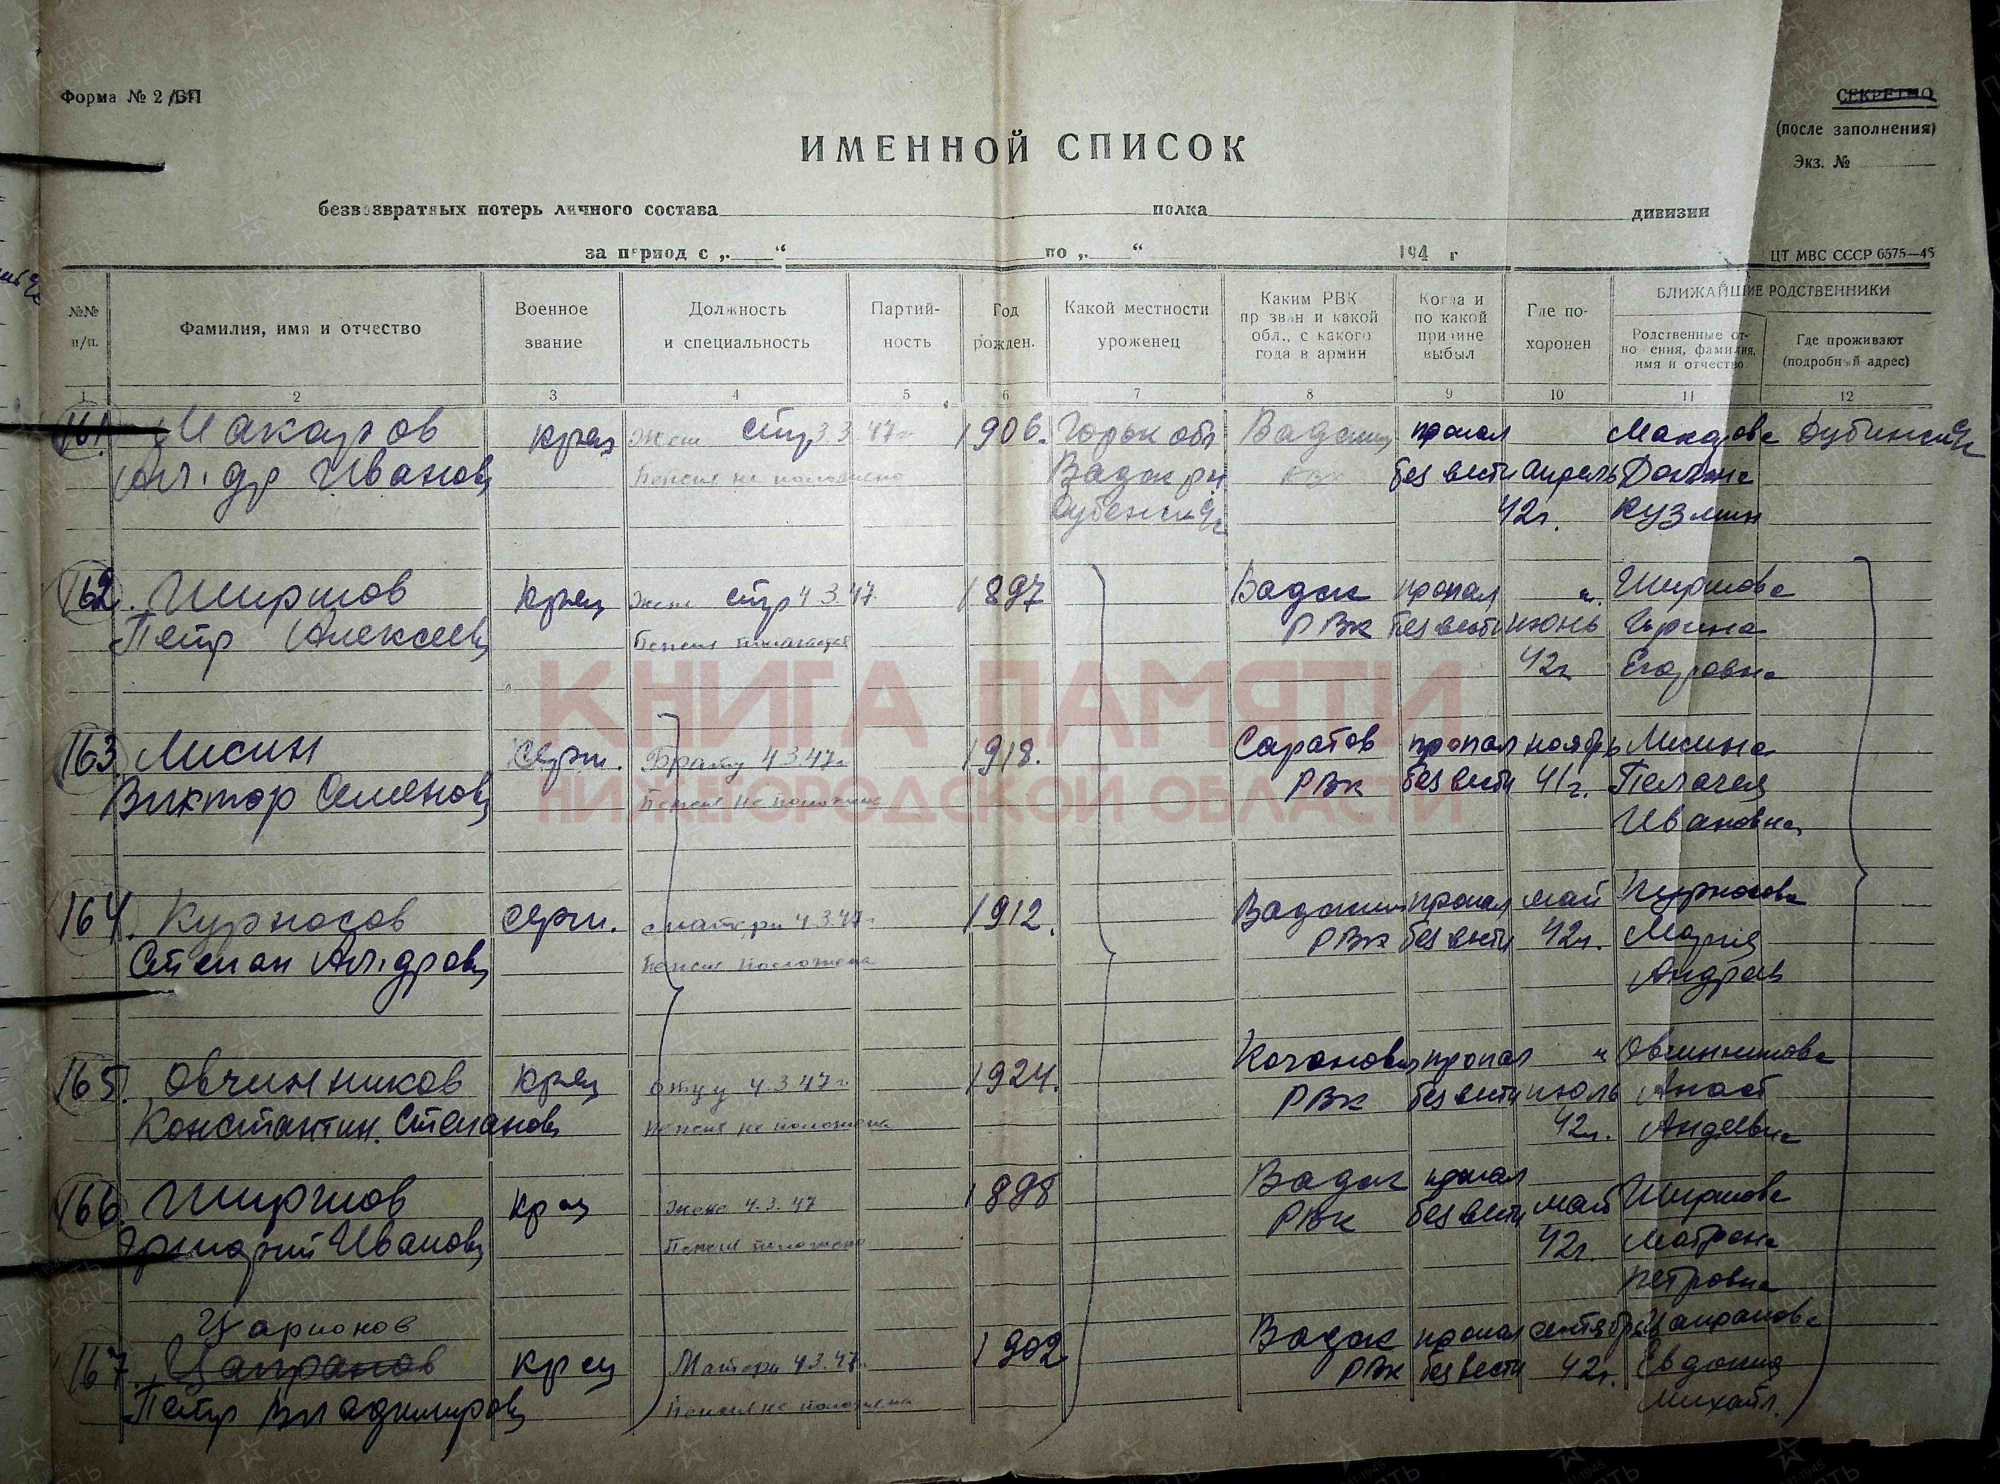 Форма № 2/БП
СЕКРЕТНО
(после заполнения)
Экз. №
ИМЕННОЙ СПИСОК
безвозвратных потерь личного состава полка дивизии
за период с „ “ по „ “ 194 г
ЦТ МВС СССР 6575—45
№№ п/п.
Фамилия, имя и отчество
Военное звание
Должность и специальность
Партий-
ность
Год рожден.
Какой местности уроженец
Каким РВК
призван и какой
обл., с какого
года в армии
Когда и
по какой
причине
выбыл
Где по-
хоронен
БЛИЖАЙШИЕ РОДСТВЕННИКИ
Родственные от-
ношения, фамилия,
имя и отчество
Где проживают
(подробный адрес)
1 2 3 4 5 6 7 8 9 10 11 12
161. Макаров кр-ец Жен стр 3.3 47г 1906. Горьк обл Вадский пропал Макарова Дубенский с/с
Ал-др Иванов Пенсия не положено Вадск рн РВК без вести апрель
Дубенский с/с 42г. Кузмин
162. Ширшов кр-ец Жене стр 4.3.47 1897 Вадск пропал Ширшова
Петр Алексеев Пенсия РВК без вести июнь Ирина
42г Егоровна
163. Лисин Серж. Брату 4 3 47г 1918. Саратов пропал ноябрь Лисина
Виктор Семенов Пенсия не положена РВК без вести 41г. Пелагея
Ивановна
164. Курносов Серж. матери 4.3.47г 1912. Вадский пропал май Курносова
Степан Ал-дров Пенсия положена РВК без вести 42г. Мария
Андреев
165. Овчинников кр-ец отцу 4.3 47г 1924. пропал Овчинникова
Константин Степанов пенсия не положена РВК без вести июль Анаст
42г. Андеевна
166. Ширшов кр-ец Жене 4.3.47 1898 Вадск пропал Ширшова
Иванов Пенсия положено РВК без вести май Матрена
42г. Петровна
Царионов
167 Цапранов кр-ец Матери 4 3.47г. 1902 Вадск пропал сентябрь
Петр Владимиров Пенсия не положена РВК без вести 42г. Евдокия
Михайл.
КНИГА ПАМЯТИ
НИЖЕГОРОДСКОЙ ОБЛАСТИ
ПАМЯТЬ НАРОДА